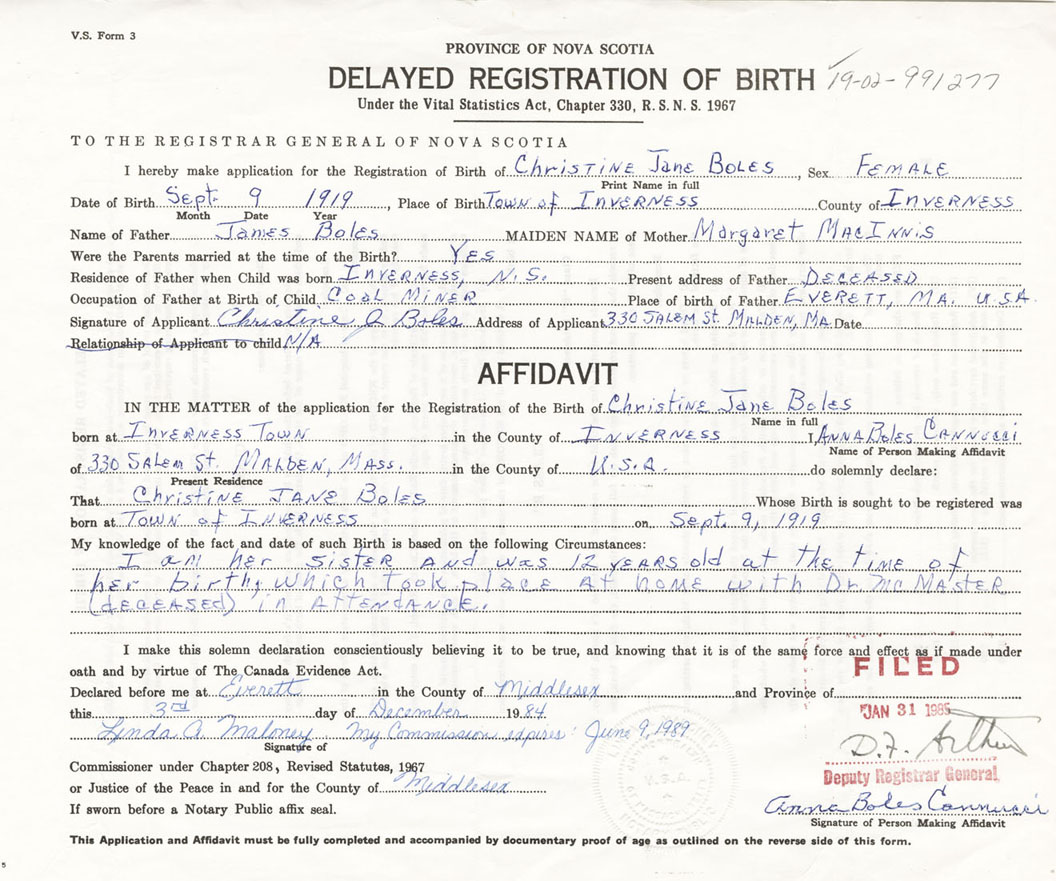 V.S. Form 3
PROVINCE OF NOVA SCOTIA
DELAYED REGISTRATION OF BIRTH 19-02-991277
Under the Vital Statistics Act, Chapter 330, R.S.N.S. 1967
TO THE REGISTRAR GENERAL OF NOVA SCOTIA
I hereby make application for the Registration of Birth of Christine Jane Boles, Sex Female
Print Name in full
Date of Birth Sept. 9 1919, Place of Birth Town of Inverness County of Inverness
Month Date Year
Name of Father James Boles MAIDEN NAME of Mother Margaret MacInnis
Were the Parents married at the time of the Birth? Yes
Residence of Father when Child was born Inverness, N.S. Present address of Father Deceased
Occupation of Father at Birth of Child Coal Miner Place of birth of Father Everett, MA. U.S.A.
Signature of Applicant Christine J Boles Address of Applicant 330 Salem St. Mallden, MA. Date
Relationship of Applicant to child N/A
AFFIDAVIT
IN THE MATTER of the application for the Registration of the Birth of Christine Jane Boles
Name in full
born at Inverness Town in the County of Inverness I, Anna Boles Cannucci
Name of Person Making Affidavit
of 330 Salem St. Malden, Mass. in the County of U.S.A. do solemnly declare:
Present Residence
That Christine Jane Boles Whose Birth is sought to be registered was
born at Town of Inverness on Sept. 9, 1919
My knowledge of the fact and date of such Birth is based on the following Circumstances:
I am her sister and was 12 years old at the time of
her birth, which took place at home with Dr. McMaster
(deceased) in attendance.
I make this solemn declaration conscientiously believing it to be true, and knowing that it is of the same force and effect as if made under
oath and by virtue of The Canada Evidence Act.
FILED
Declared before me at Everett in the County of Middlesex and Province of
this 3rd day of December 1984
JAN 31 1985
Linda A. Maloney My Commission expires: June 9, 1989
Signature of
D.F. Arthur
Commissioner under Chapter 208, Revised Statutes, 1967
Deputy Registrar General
or Justice of the Peace in and for the County of Middlesex
If sworn before a Notary Public affix seal.
Anna Boles Cannucci
Signature of Person Making Affidavit
This Application and Affidavit must be fully completed and accompanied by documentary proof of age as outlined on the reverse side of this form.
5